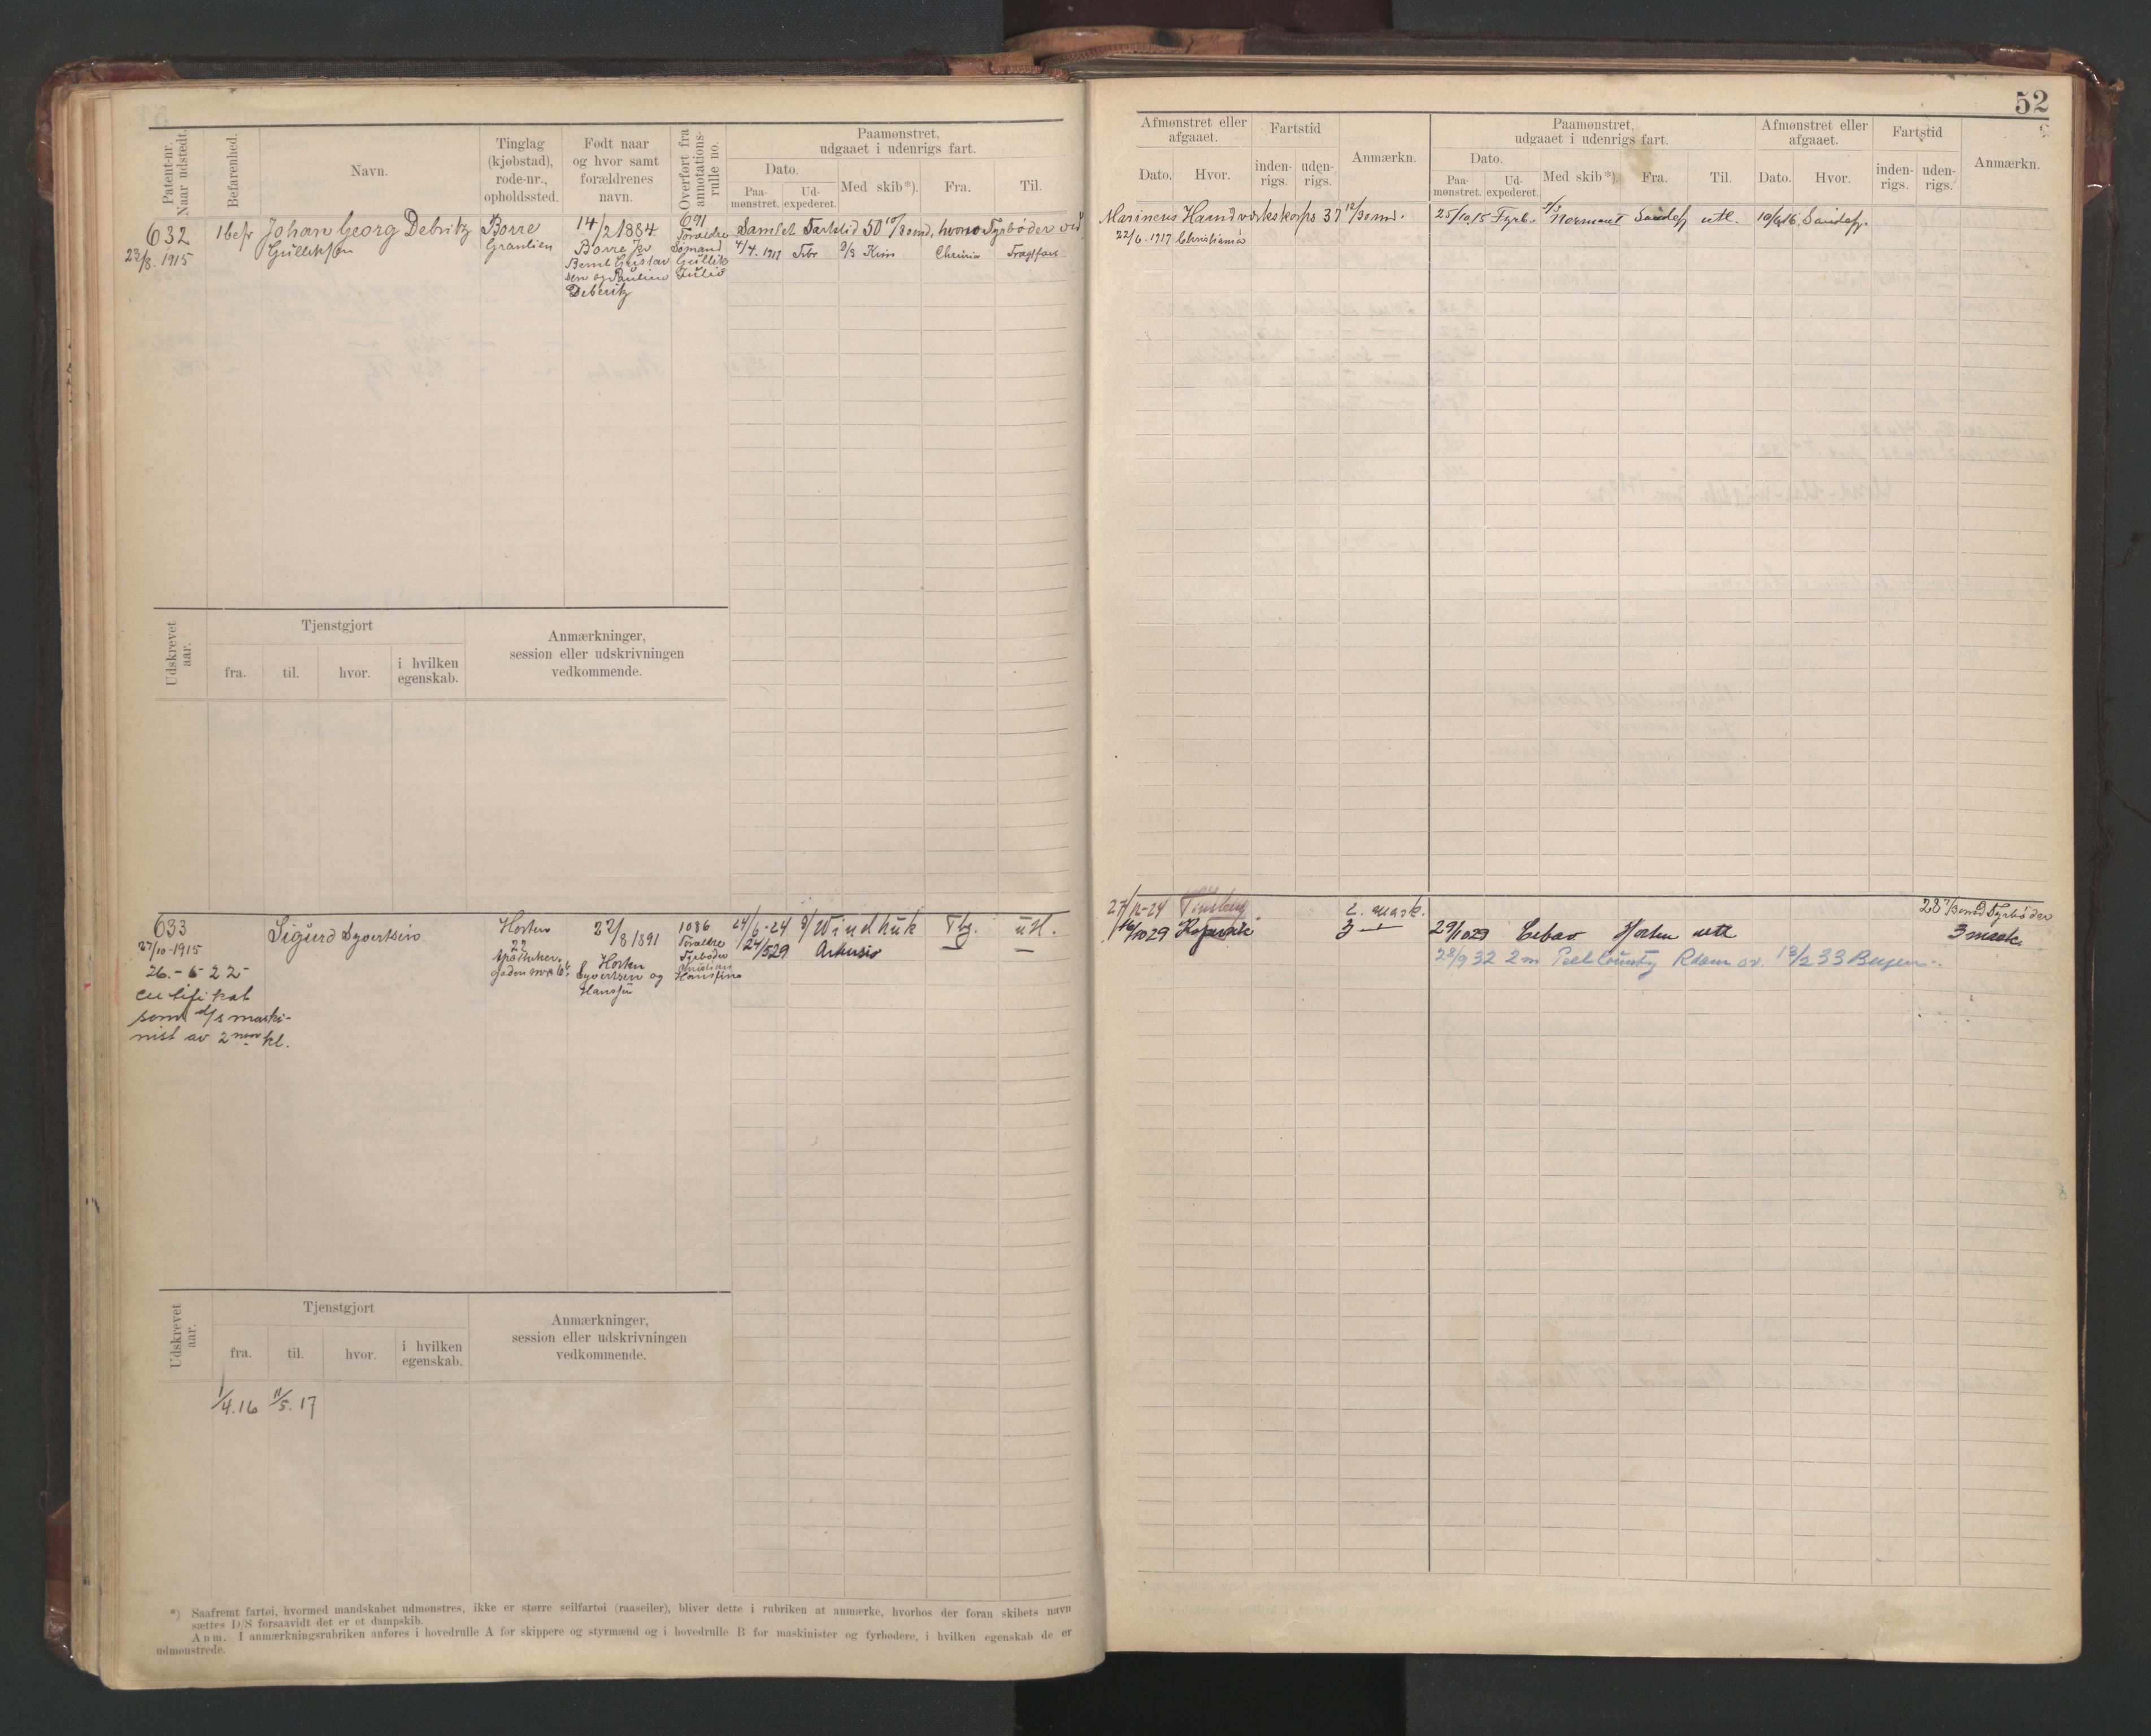 52
Patent-nr. Naar udstedt.
Befarenhed.
Navn.
Tinglag (kjøbstad), rode-nr., opholdssted.
Født naar og hvor samt forældrenes navn.
Overført fra annotations-rulle no.
Paamønstret, udgaaet i udenrigs fart.
Dato.
Paa-mønstret.
Ud-expederet.
Med skib*).
Fra.
Til.
Afmønstret eller afgaaet.
Dato.
Hvor.
Fartstid
inden-rigs.
uden-rigs.
Anmærkn.
Paamønstret, udgaaet i udenrigs fart.
Dato.
Paa-mønstret.
Ud-expederet.
Med skib*).
Fra.
Til.
Afmønstret eller afgaaet.
Dato.
Hvor.
Fartstid
inden-rigs.
uden-rigs.
Anmærkn.
632
23/8. 1915
1 befr
Johan Georg Debritz
Gulliksen
Borre
Granlien
14/2 1884
Borre
Bernt Gustav
sen og Pauline
Deberitz
691
Foreldre
Sømand
Gullik
Julie
Samlet Farttid 50 Bemd, hvorav Fyrbøder ved
Marinens Haandverkskorps 37 12/30 md.
4/4. 1917 Fbr D/S Kim Chrnia Fragtfart
22/6. 1917 Christiania
25/10 15 Fyrb. D/S Normant Sandefj utl. 10/6 16 Sandefj.
Udskrevet aar.
Tjenstgjort
fra.
til.
hvor.
i hvilken egenskab.
Anmærkninger, session eller udskrivningen vedkommende.
633
27/10-1915
26.-6 22
certifikat
som d/s maski-
nist av 2nen kl.
Sigurd Syvertsen
Horten
22
Apotheker
gaden
22/8 1891
Horten
Syvertsen og
1086
Foreldre
Fyrbøder
Kristian
24/6-24 Windhuk Tbg. utl.
24/5 29
27/12-24 Tønsberg 2. mask.
16/10 29 3
29/10 29 Horten utl
28 Fyrbøder
3 mask.
28/9 32 2 m Peel County Rdam 13/2 33 Bergen
Udskrevet aar.
Tjenstgjort
fra.
til.
hvor.
i hvilken egenskab.
Anmærkninger, session eller udskrivningen vedkommende.
1/4.16 11/5. 17
*) Saafremt fartøi, hvormed mandskabet udmønstres, ikke er større seilfartøi (raaseiler), bliver dette i rubriken at anmærke, hvorhos der foran skibets navn
sættes D/S forsaavidt det er et dampskib.
Anm. I anmærkningsrubriken anføres i hovedrulle A for skippere og styrmænd og i hovedrulle B for maskinister og fyrbødere, i hvilken egenskab de er
udmønstrede.